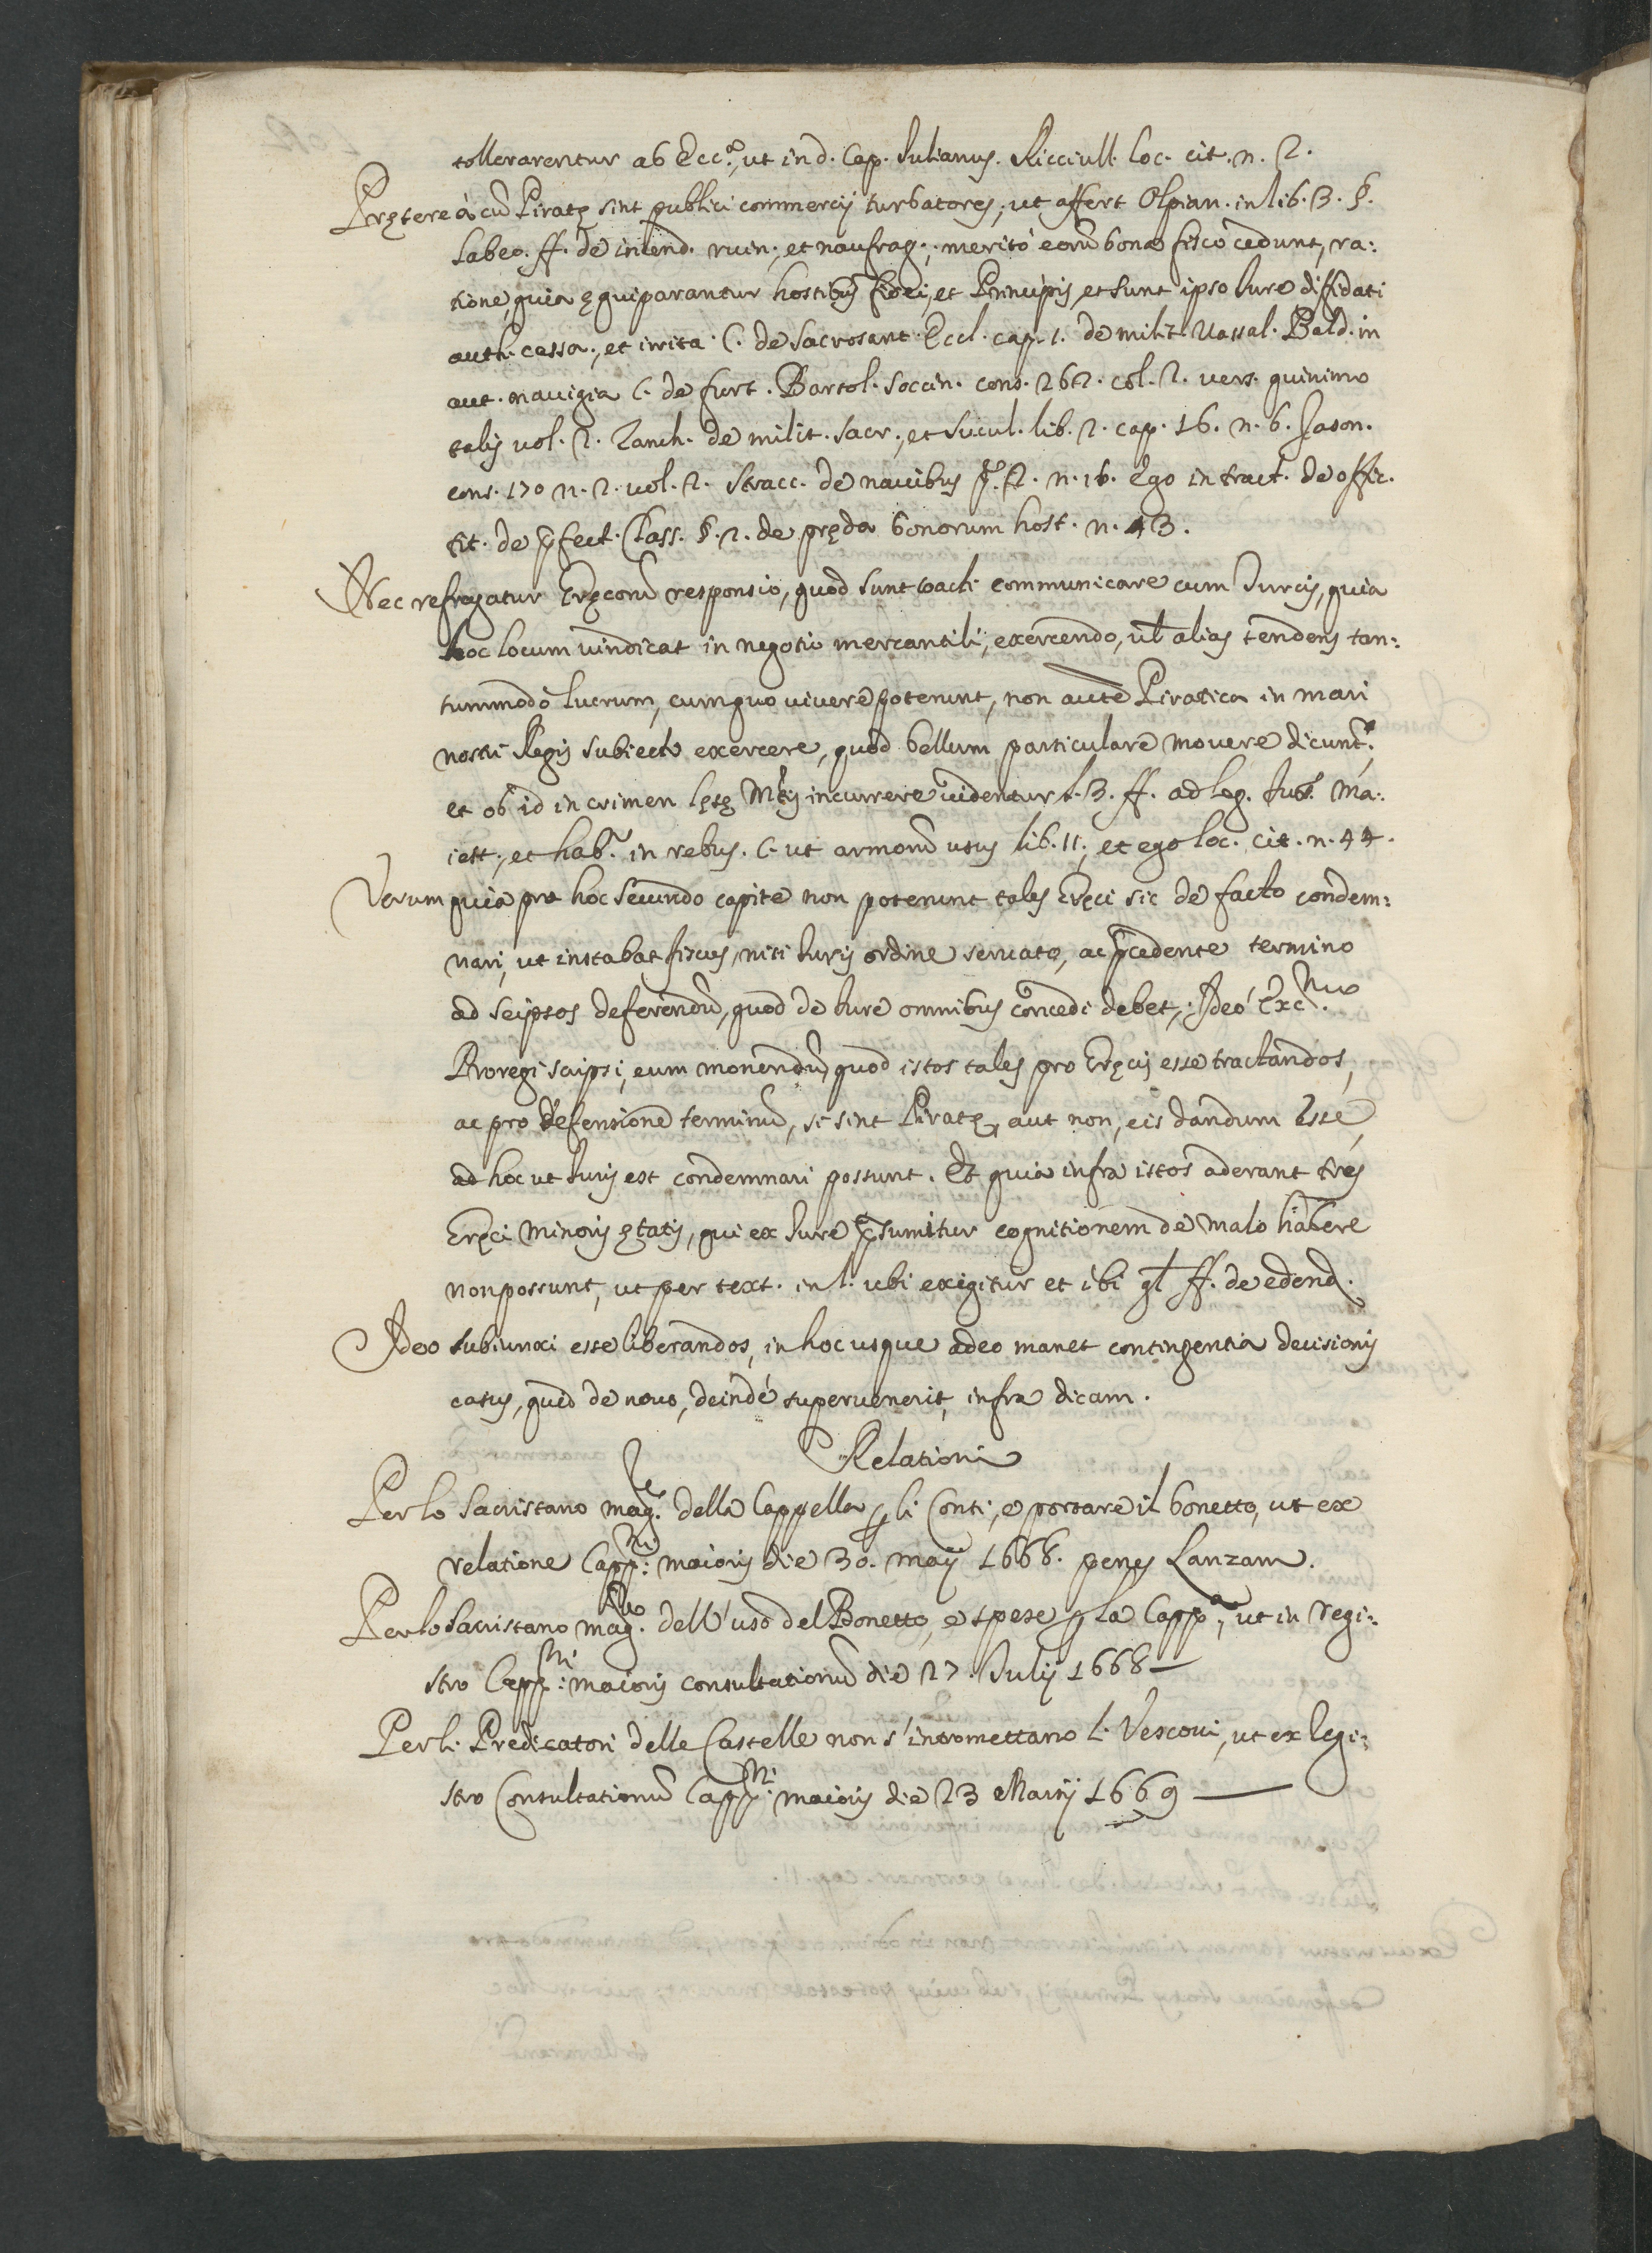 tollerarentur ab Ecc.ª, ut in d. Cap. Iulianus. Ricciull. loc. cit. n. 2.
Prętereà cũ Piratę sint publici commercij turbatores, ut affert Olpian. in lib. 3. §.
Labeo. ff. de incend. ruin., et naufrag., meritó eorũ bona fisco cedunt, ra:
tione, quia ęquiparantur hostibus fidei, et Principis, et sunt ipso Iure diffidati
auth. cassa., et irrita. C. de Sacrosant. Eccl. cap. 1. de milit. Vassal. Bald. in
aut. navigia C. de furt. Bartol. Soccin. cons. 262. col. 2. vers. quinimo
talis vol. 2. Zanch. de milit. sacr., et secul. lib. 2. cap. 16. n. 6. Jason.
cons. 170 n. 2. vol. 2. Stracc. de navibus p. 2. n. 16. Ego in tract. de offic.
tit. de p̃fect. Class. §. 2. de pręda bonorum host. n. 43.
Nec refragatur Gręcorũ responsio, quod sunt coacti communicare cum Turcis, quia
hoc locum vindicat in negotio mercantili, exercendo, vl̃ alias tendens tan:
tummodò lucrum, cum quo vivere poterunt, non autẽ Piratica in mari
nostri Regis subiecto exercere, quod bellum particulare movere dicunt.r
et ob id in crimen lęsę Mtis incurrere videntur l. 3. ff. ad leg. Iul. Ma:
iest., et hab.r in rebus. C. ut armorũ usus lib. 11., et ego loc. cit. n. 44.
Verum quia pro hoc secundo capite non poterunt tales Gręci sic de facto condem:
nari, ut instabat fiscus, nisi Iuris ordine servato, ac p̃cedente termino
ad seipsos deferendũ, quod de Iure omnibus concedi debet, Ideó Exc.mo
Proregi scripsi, eum monendũ, quod istos tales pro Gręcis esse tractandos,
ac pro defensione terminũ, si sint Piratę, aut non, eis dandum esse,
ad hoc ut Iuris est condemnari possunt. Et quia infra istos aderant tres
Gręci minoris ętatis, qui ex Iure p̃sumitur cognitionem de malo habere
non possunt, ut per text. in l. ubi exigitur et ibi gl̃ ff. de edend.
Ideo subiunxi esse liberandos, in hoc usque adeo manet contingentia decisionis
casus, quid de novo, deindé supervenerit, infra dicam.
Relationi
Per lo Sacristano mag.re della Cappella p̱ li Conti, e portare il bonetto, ut ex
relatione Capp.ni maioris die 30. maij 1668. penes Lanzam.
Per lo Sacristano mag.re dell'uso del Bonetto, e spese p̱ la Capp.ª, ut in regi:
stro Capp.ni maioris consultationũ die 27. Iulij 1668—
Per li Predicatori delle Castelle non s'intromettano l. Vescovi, ut ex regi:
stro Consultationũ Capp.ni maioris die 23 Martij 1669 —